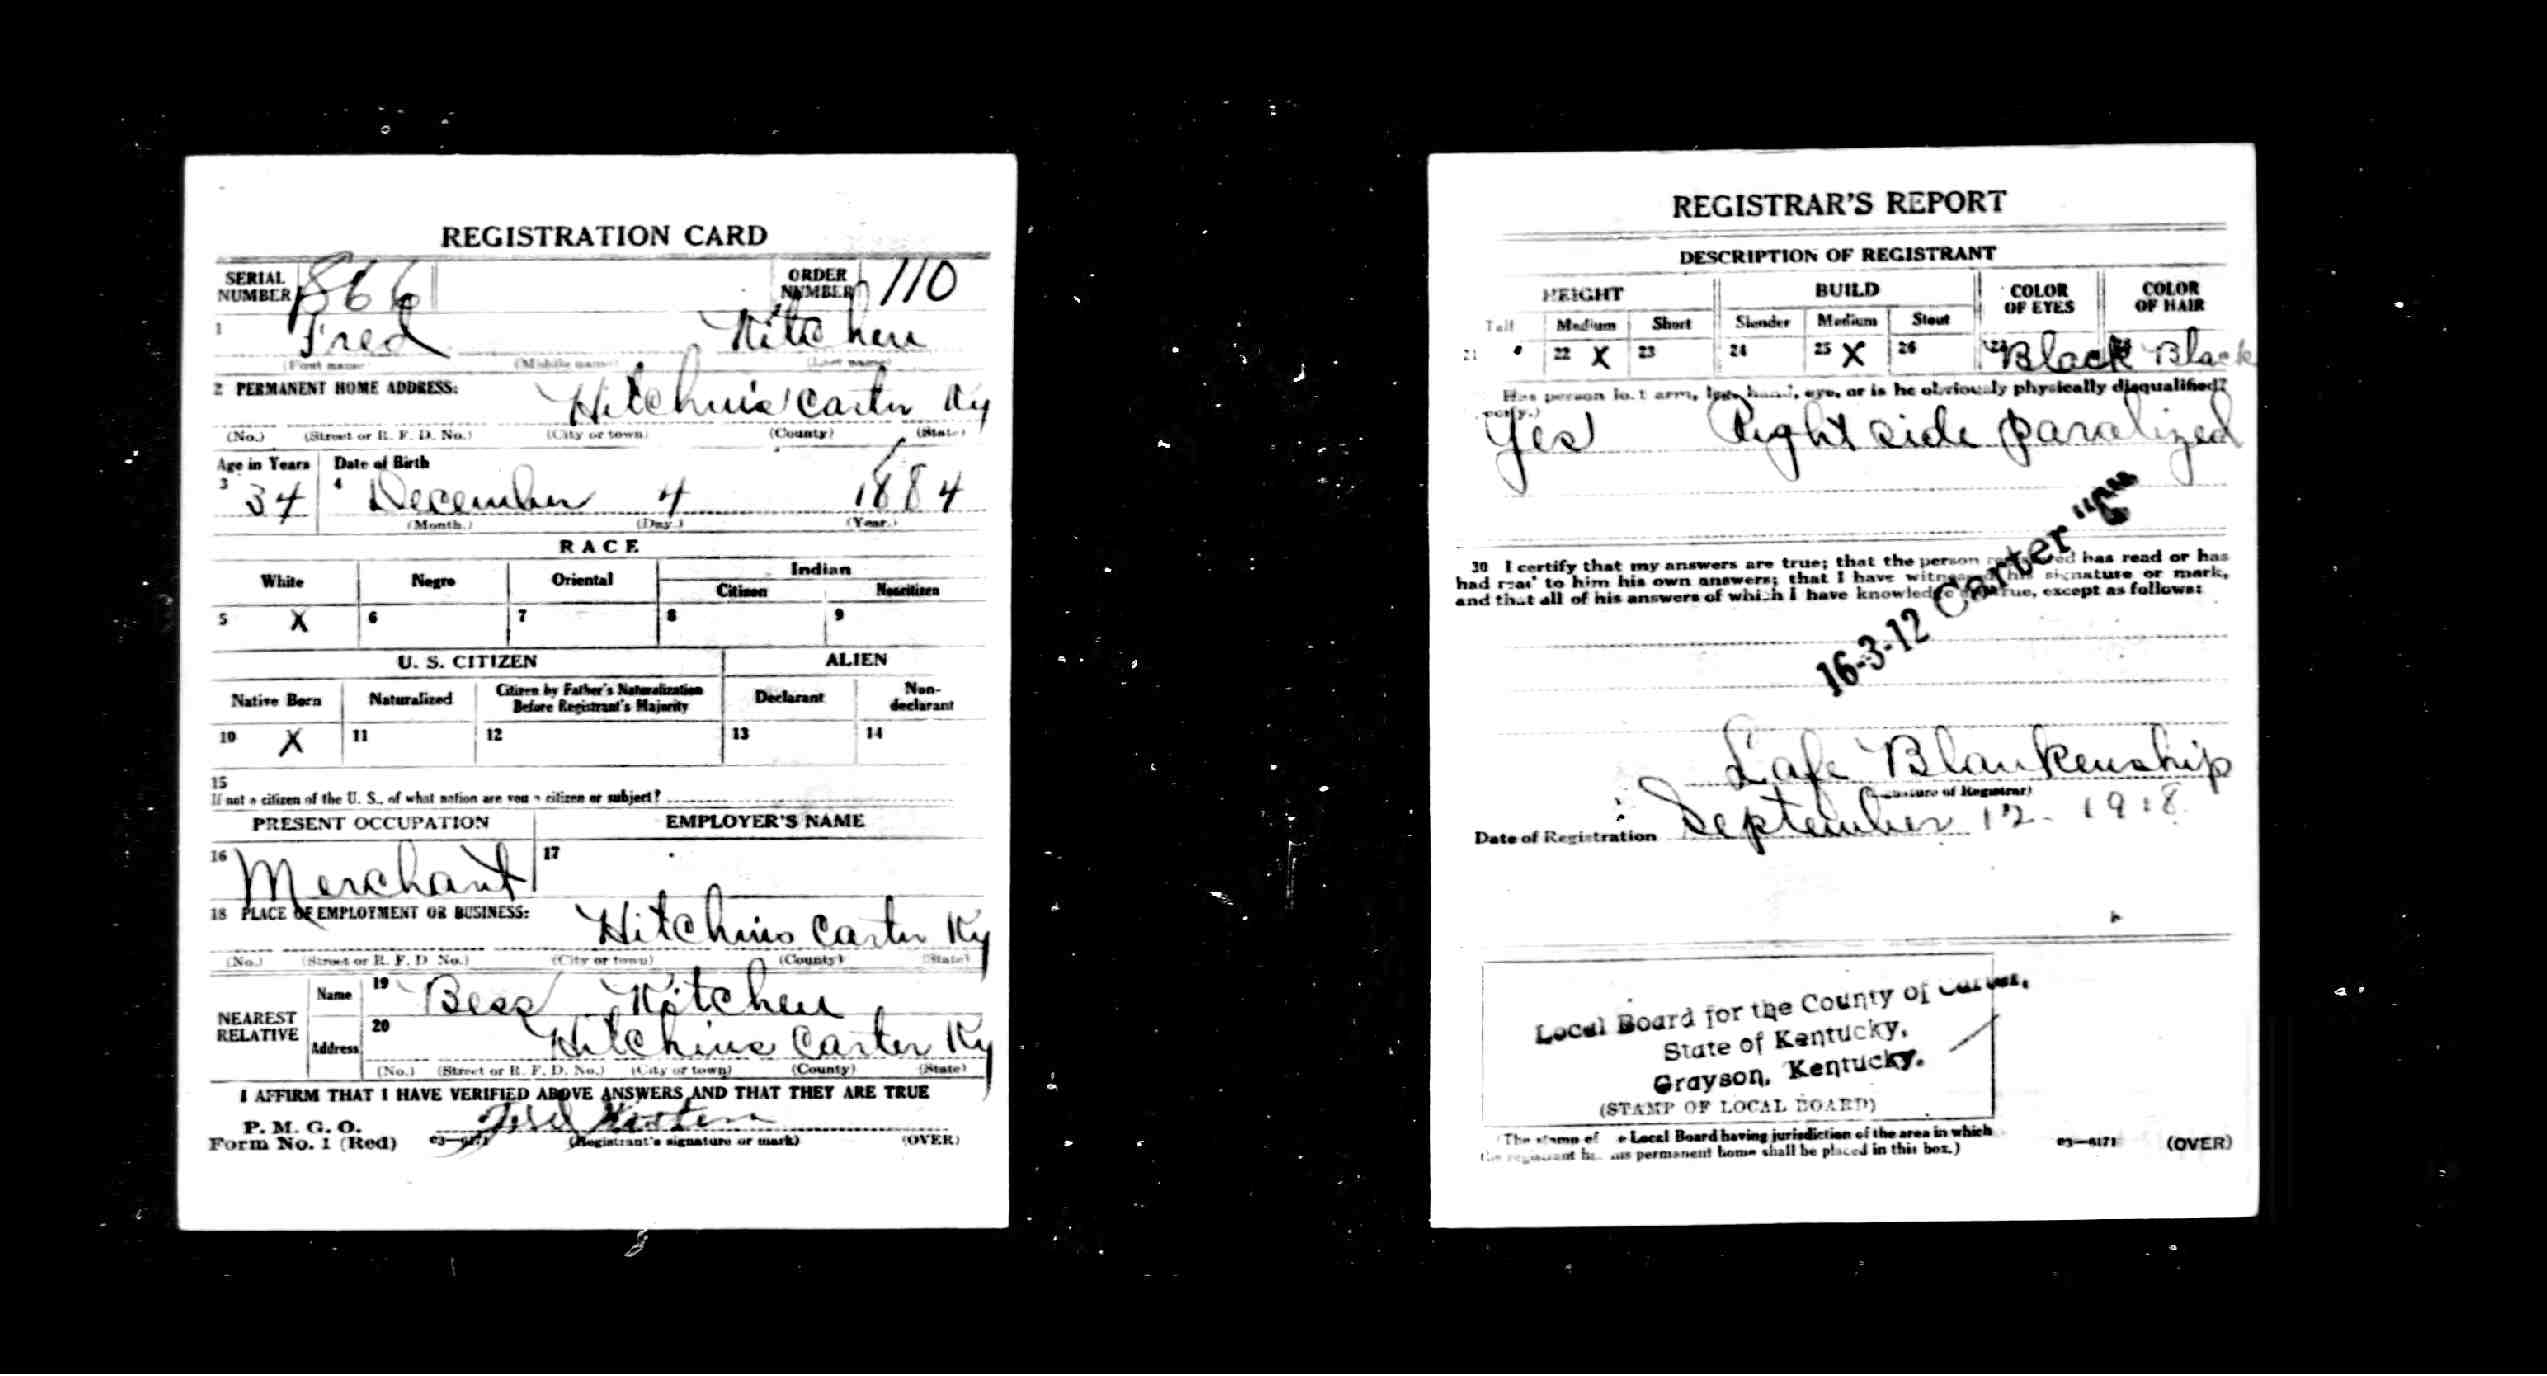 REGISTRATION CARD
SERIAL NUMBER 866 ORDER NUMBER 110
1 Fred Kitchen
(First name) (Middle name) (Last name)
2 PERMANENT HOME ADDRESS:
Hitchins Carter Ky
(No.) (Street or R. F. D. No.) (City or town) (County) (State)
Age in Years Date of Birth
3 34 4 December 4 1884
(Month.) (Day.) (Year.)
RACE
White Negro Oriental Indian
Citizen Noncitizen
5 X 6 7 8 9
U. S. CITIZEN ALIEN
Native Born Naturalized Citizen by Father's Naturalization Before Registrant's Majority Declarant Non-declarant
10 X 11 12 13 14
15
If not a citizen of the U. S., of what nation are you a citizen or subject?
PRESENT OCCUPATION EMPLOYER'S NAME
16 Merchant 17
18 PLACE OF EMPLOYMENT OR BUSINESS:
Hitchins Carter Ky
(No.) (Street or R. F. D. No.) (City or town) (County) (State)
NEAREST RELATIVE
Name 19 Bess Kitchen
Address 20 Hitchins Carter Ky
(No.) (Street or R. F. D. No.) (City or town) (County) (State)
I AFFIRM THAT I HAVE VERIFIED ABOVE ANSWERS AND THAT THEY ARE TRUE
P. M. G. O.
Form No. 1 (Red) 03—6171 (Registrant's signature or mark) (OVER)
REGISTRAR'S REPORT
DESCRIPTION OF REGISTRANT
HEIGHT BUILD COLOR OF EYES COLOR OF HAIR
Tall Medium Short Slender Medium Stout
21 22 X 23 24 25 X 26 Black Black
Has person lost arm, leg, hand, eye, or is he obviously physically disqualified?
Yes Right side paralized
30 I certify that my answers are true; that the person registered has read or has
had read to him his own answers; that I have witnessed his signature or mark,
and that all of his answers of which I have knowledge are true, except as follows:
16-3-12 Carter
Lafe Blankenship
(Signature of Registrar)
Date of Registration September 12 - 1918
Local Board for the County of Carter,
State of Kentucky,
Grayson, Kentucky.
(STAMP OF LOCAL BOARD)
(The stamp of the Local Board having jurisdiction of the area in which
the registrant has his permanent home shall be placed in this box.)
03—6171 (OVER)